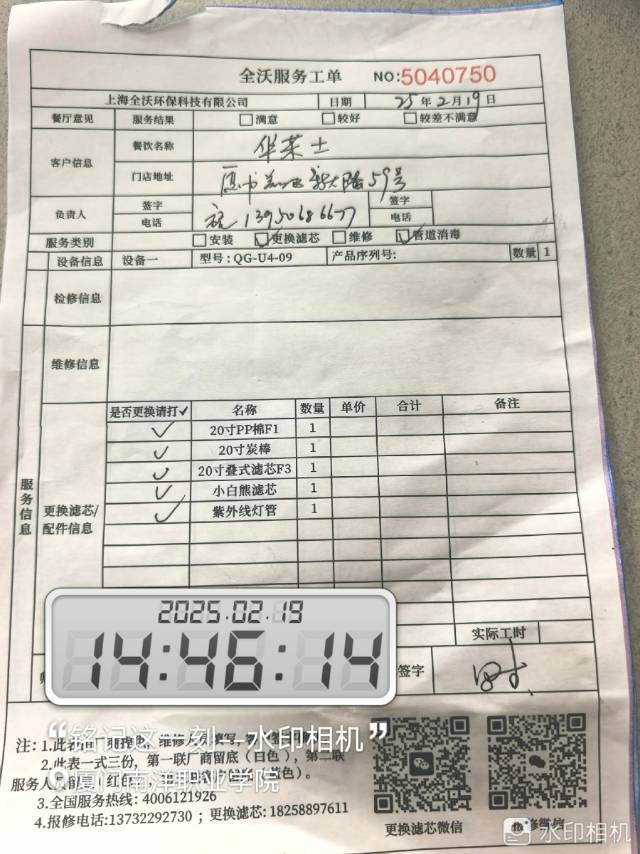 全沃服务工单 NO:5040750
上海全沃环保科技有限公司 日期 25年2月19日
餐厅意见 服务结果 满意 较好 较差不满意
客户信息 餐饮名称 华莱士
门店地址 59号
负责人 签字 签字
电话 13950686677 电话
服务类别 安装 更换滤芯 维修 管道消毒
设备信息 设备一 型号:QG-U4-09 产品序列号: 数量 1
检修信息
维修信息
服务信息
更换滤芯/配件信息
是否更换请打✓ 名称 数量 单价 合计 备注
✓ 20寸PP棉F1 1
✓ 20寸炭棒 1
✓ 20寸叠式滤芯F3 1
✓ 小白熊滤芯 1
✓ 紫外线灯管 1
实际工时
2025.02.19
14:46:14
签字
“铭记这一刻，水印相机”
厦门南洋职业学院
注: 1.此 维修 填写,
2.此表一式三份，第一联厂商留底（白色），第二联
服务人员 (红 黄色）。
3.全国服务热线: 4006121926
4.报修电话:13732292730 ；更换滤芯: 18258897611
更换滤芯微信 报修微信
水印相机